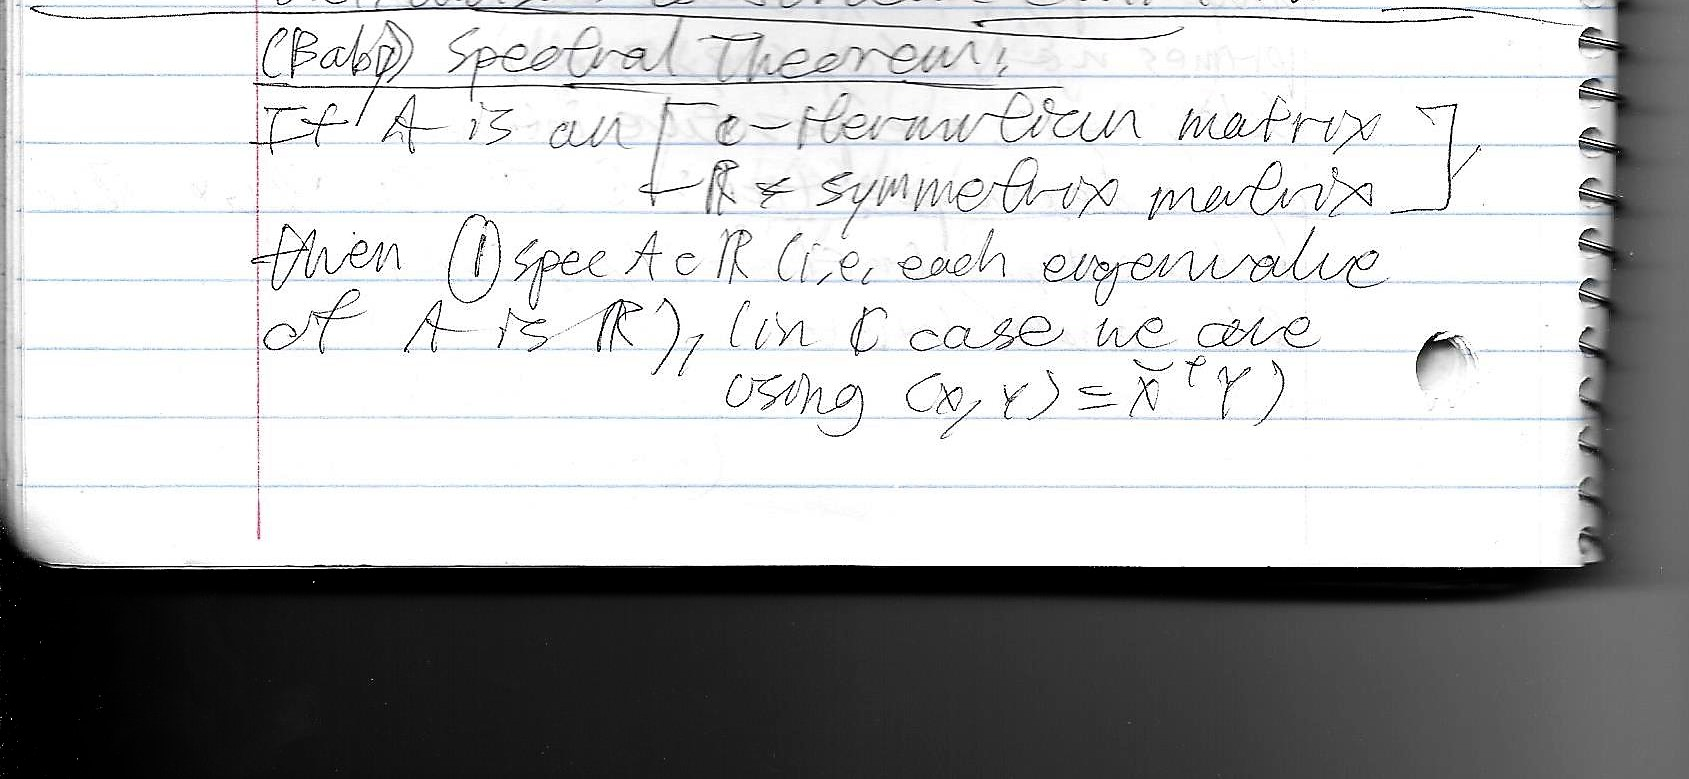 (Baby) Spectral Theorem:
If A is an [ C-Hermitian matrix ]
R - symmetrix matrix
then ① spec A ⊂ ℝ (i.e. each eigenvalue
of A is ℝ), (in ℂ case we are
using (x, y) = x̄ᵗ y)